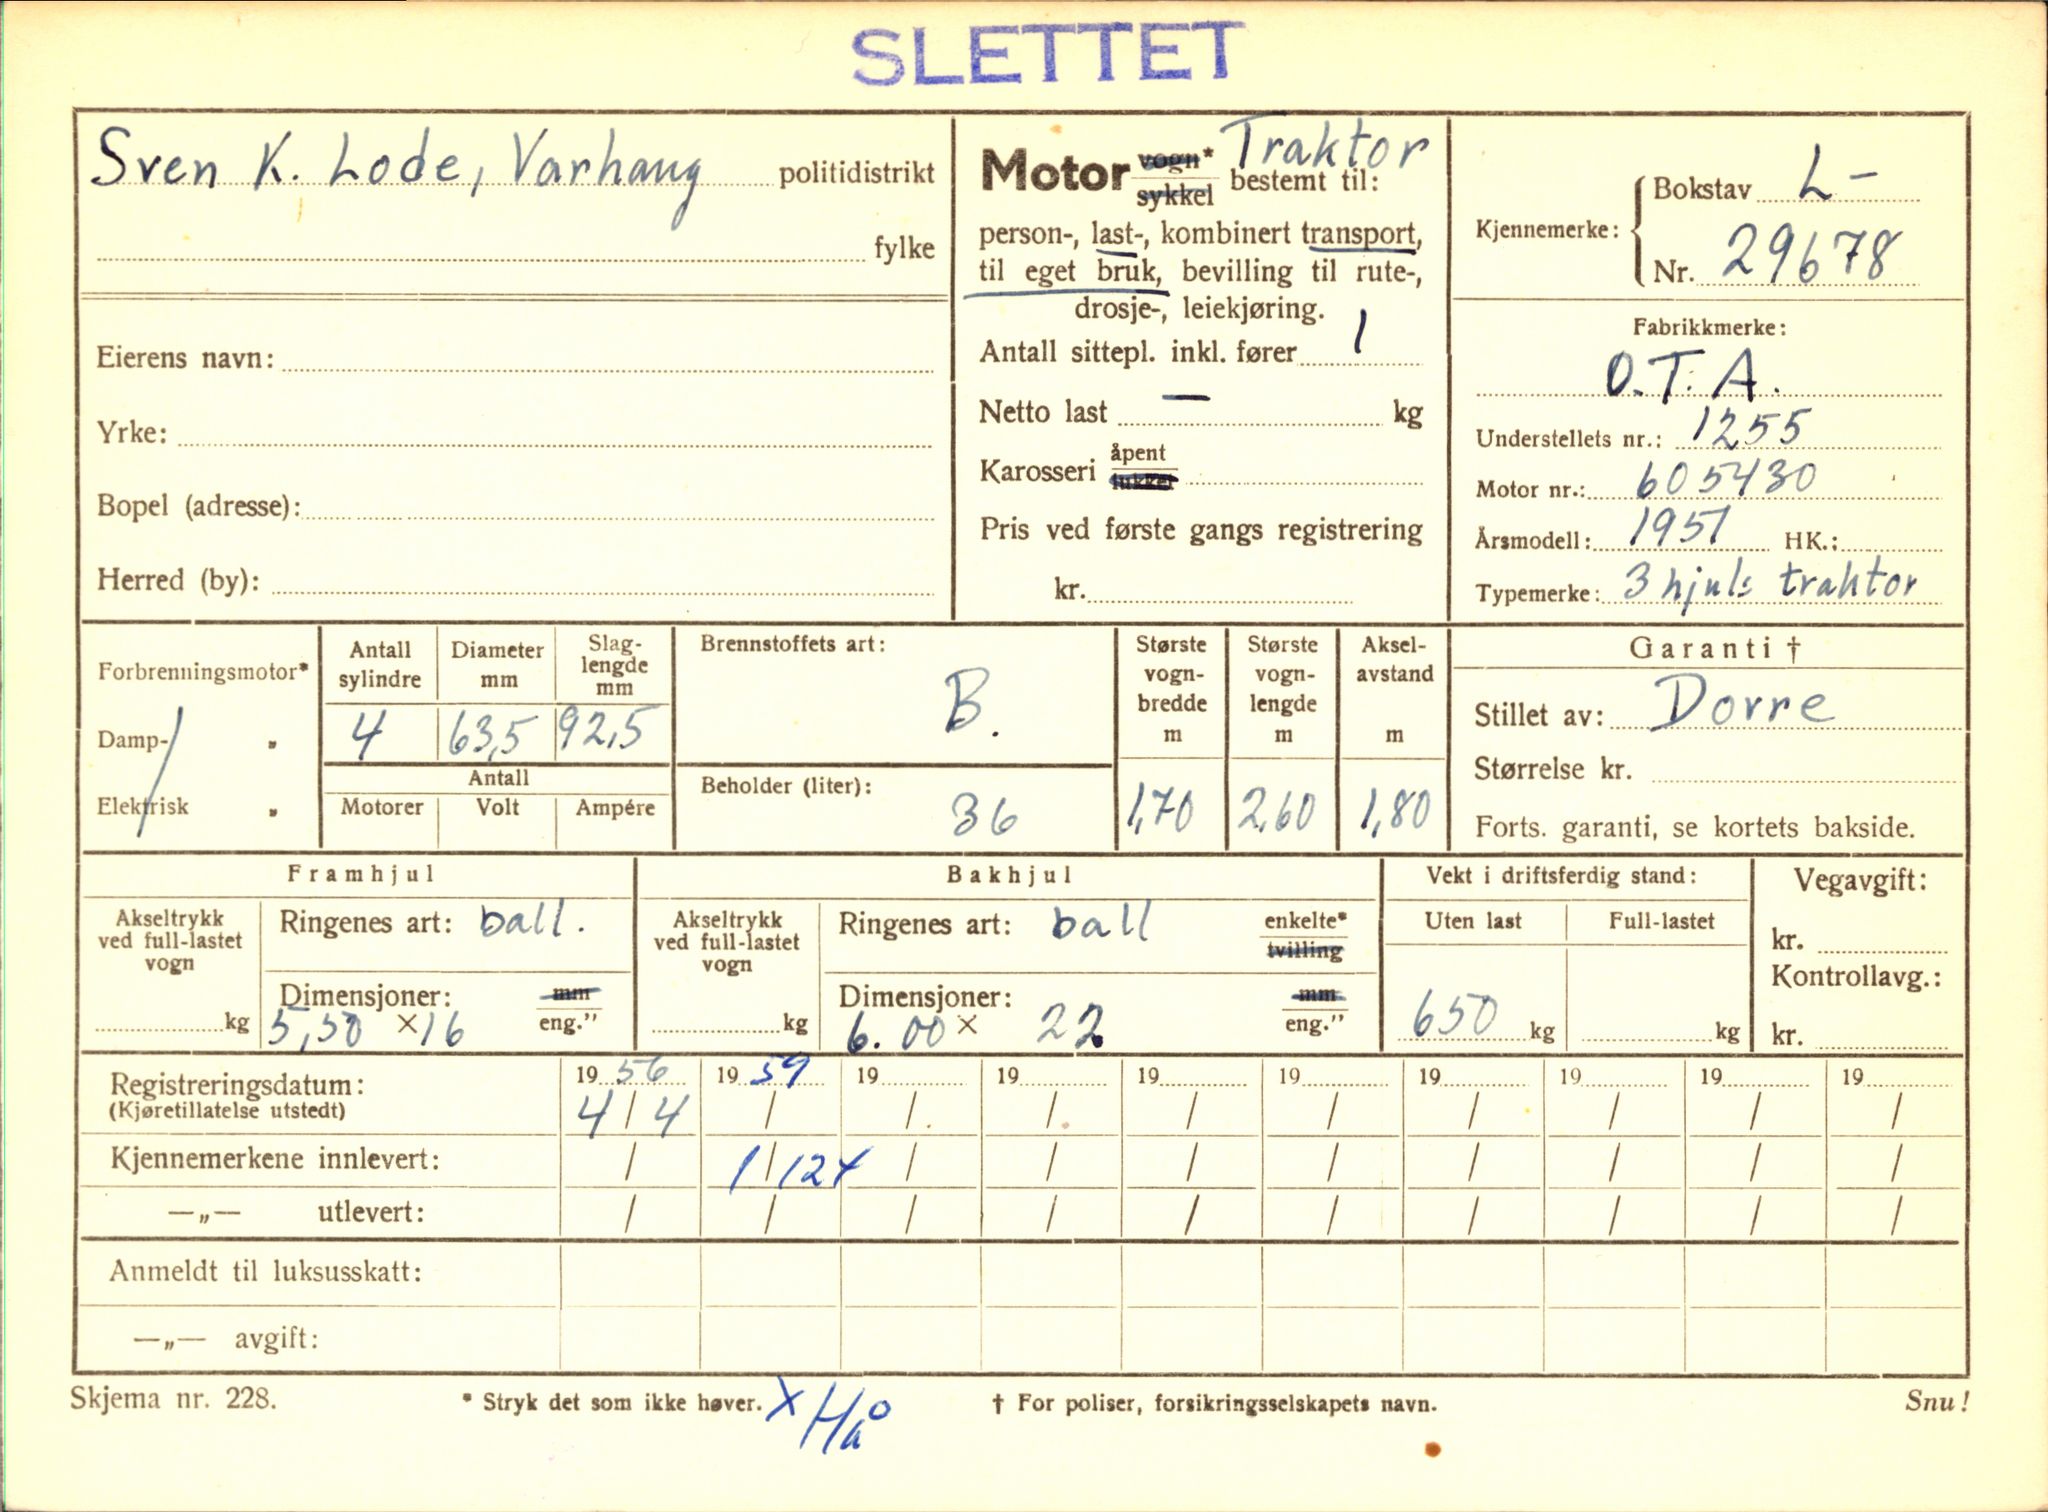 SLETTET
Sven K. Lode, Varhaug politidistrikt
fylke
Eierens navn:
Yrke:
Bopel (adresse):
Herred (by):
Motor vogn* Traktor
sykkel bestemt til:
person-, last-, kombinert transport,
til eget bruk, bevilling til rute-,
drosje-, leiekjøring.
Antall sittepl. inkl. fører 1
Netto last — kg
Karosseri åpent
lukket
Pris ved første gangs registrering
kr.
Kjennemerke: Bokstav L-
Nr. 29678
Fabrikkmerke:
O.T.A.
Understellets nr.: 1255
Motor nr.: 605430
Årsmodell: 1951 HK.:
Typemerke: 3 hjuls traktor
Forbrenningsmotor*
Damp- "
Elektrisk "
Antall sylindre
4
Diameter mm
63,5
Slag-
lengde
mm
92,5
Antall
Motorer Volt Ampére
Brennstoffets art:
B.
Beholder (liter):
36
Største
vogn-
bredde
m
1,70
Største
vogn-
lengde
m
2,60
Aksel-
avstand
m
1,80
Garanti †
Stillet av: Dorre
Størrelse kr.
Forts. garanti, se kortets bakside.
Framhjul
Akseltrykk
ved full-lastet
vogn
kg
Ringenes art: ball.
Dimensjoner: mm
5,50 × 16 eng."
Bakhjul
Akseltrykk
ved full-lastet
vogn
kg
Ringenes art: ball enkelte*
tvilling
Dimensjoner: mm
6.00 × 22 eng."
Vekt i driftsferdig stand:
Uten last Full-lastet
650 kg kg
Vegavgift:
kr.
Kontrollavg.:
kr.
Registreringsdatum: 19 56 19 59 19 19 19 19 19 19 19 19
(Kjøretillatelse utstedt) 4/4 / / / / / / / / /
Kjennemerkene innlevert: / 1/12 x / / / / / / / /
—„— utlevert: / / / / / / / / / /
Anmeldt til luksusskatt:
—„— avgift:
Skjema nr. 228. * Stryk det som ikke høver. x Hå † For poliser, forsikringsselskapets navn. Snu!